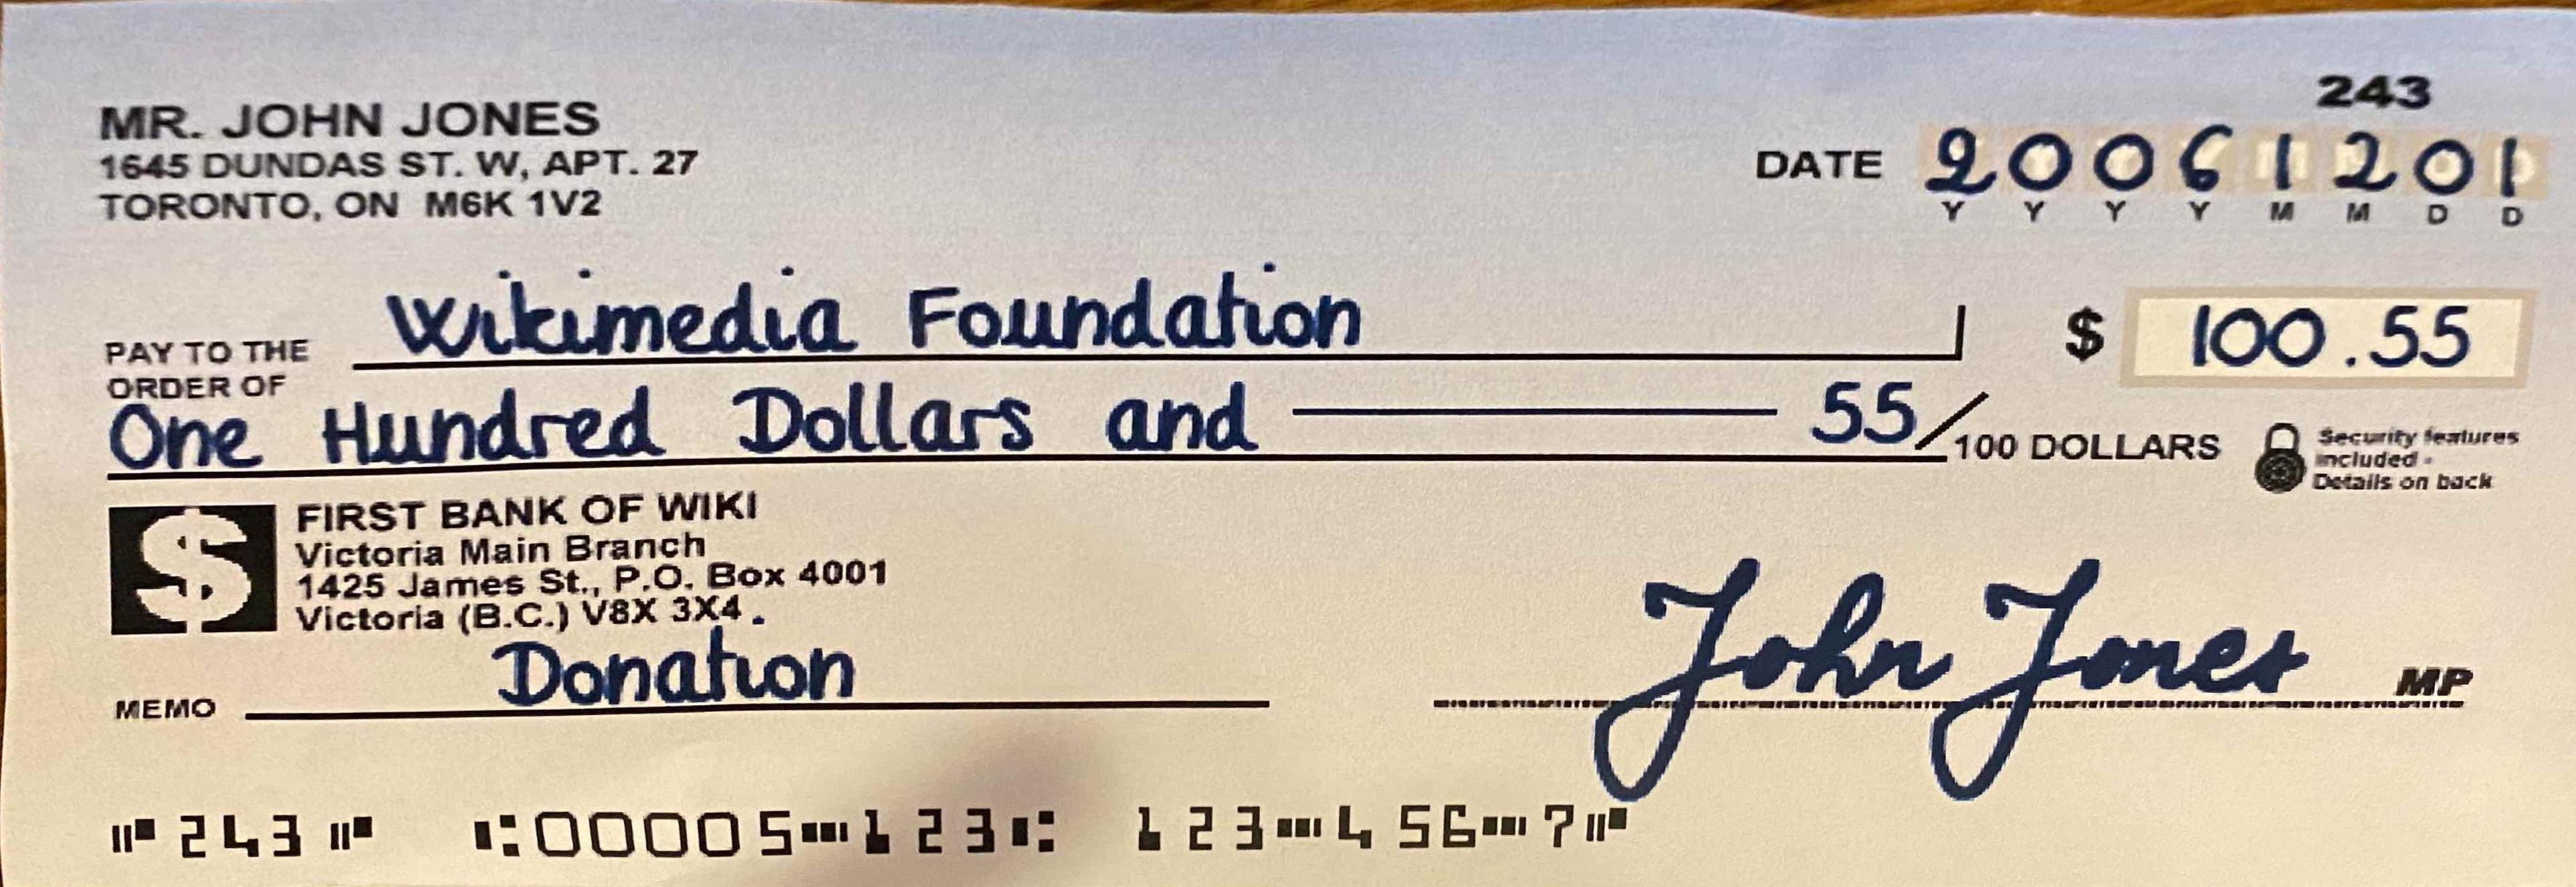 243
MR. JOHN JONES
1645 DUNDAS ST. W, APT. 27
TORONTO, ON M6K 1V2
DATE 20061201
Y Y Y Y M M D D
PAY TO THE
ORDER OF
Wikimedia Foundation
$ 100.55
One Hundred Dollars and 55/100 DOLLARS
Security features
included -
Details on back
$
FIRST BANK OF WIKI
Victoria Main Branch
1425 James St., P.O. Box 4001
Victoria (B.C.) V8X 3X4
MEMO Donation
John Jones MP
⑈243⑈ ⑆00005⑉123⑆ 123⑉456⑉7⑈